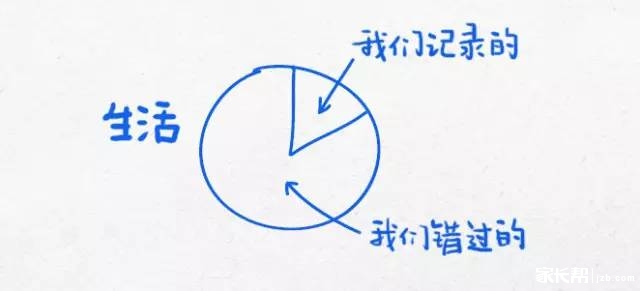 我们记录的
生活
我们错过的
家长帮 jzb.com